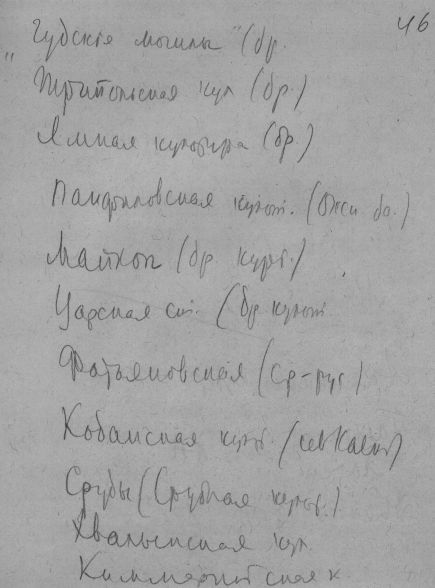 46
"Чудские могилы" (бр.
Трипольская кул (бр.)
Ямная культура (бр.)
Панфиловская культ.
Майкоп (бр. культ.)
Царская ст. (бр культ
Фатьяновская (Ср-рус)
Кобанская культ.
Срубы (Срубная культ.)
Хвалынская кул.
Киммерийская к.